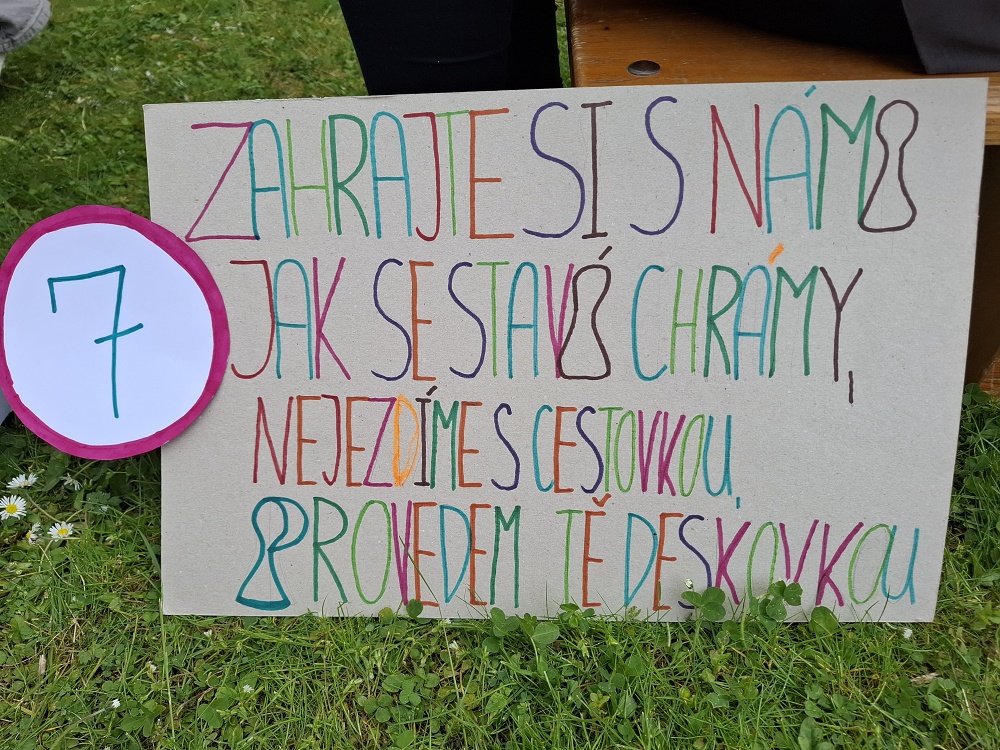 ZAHRAJTE SI S NÁMI
7
JAK SE STAVÍ CHRÁMY,
NEJEZDÍME S CESTOVKOU,
PROVEDEM TĚ DESKOVKOU